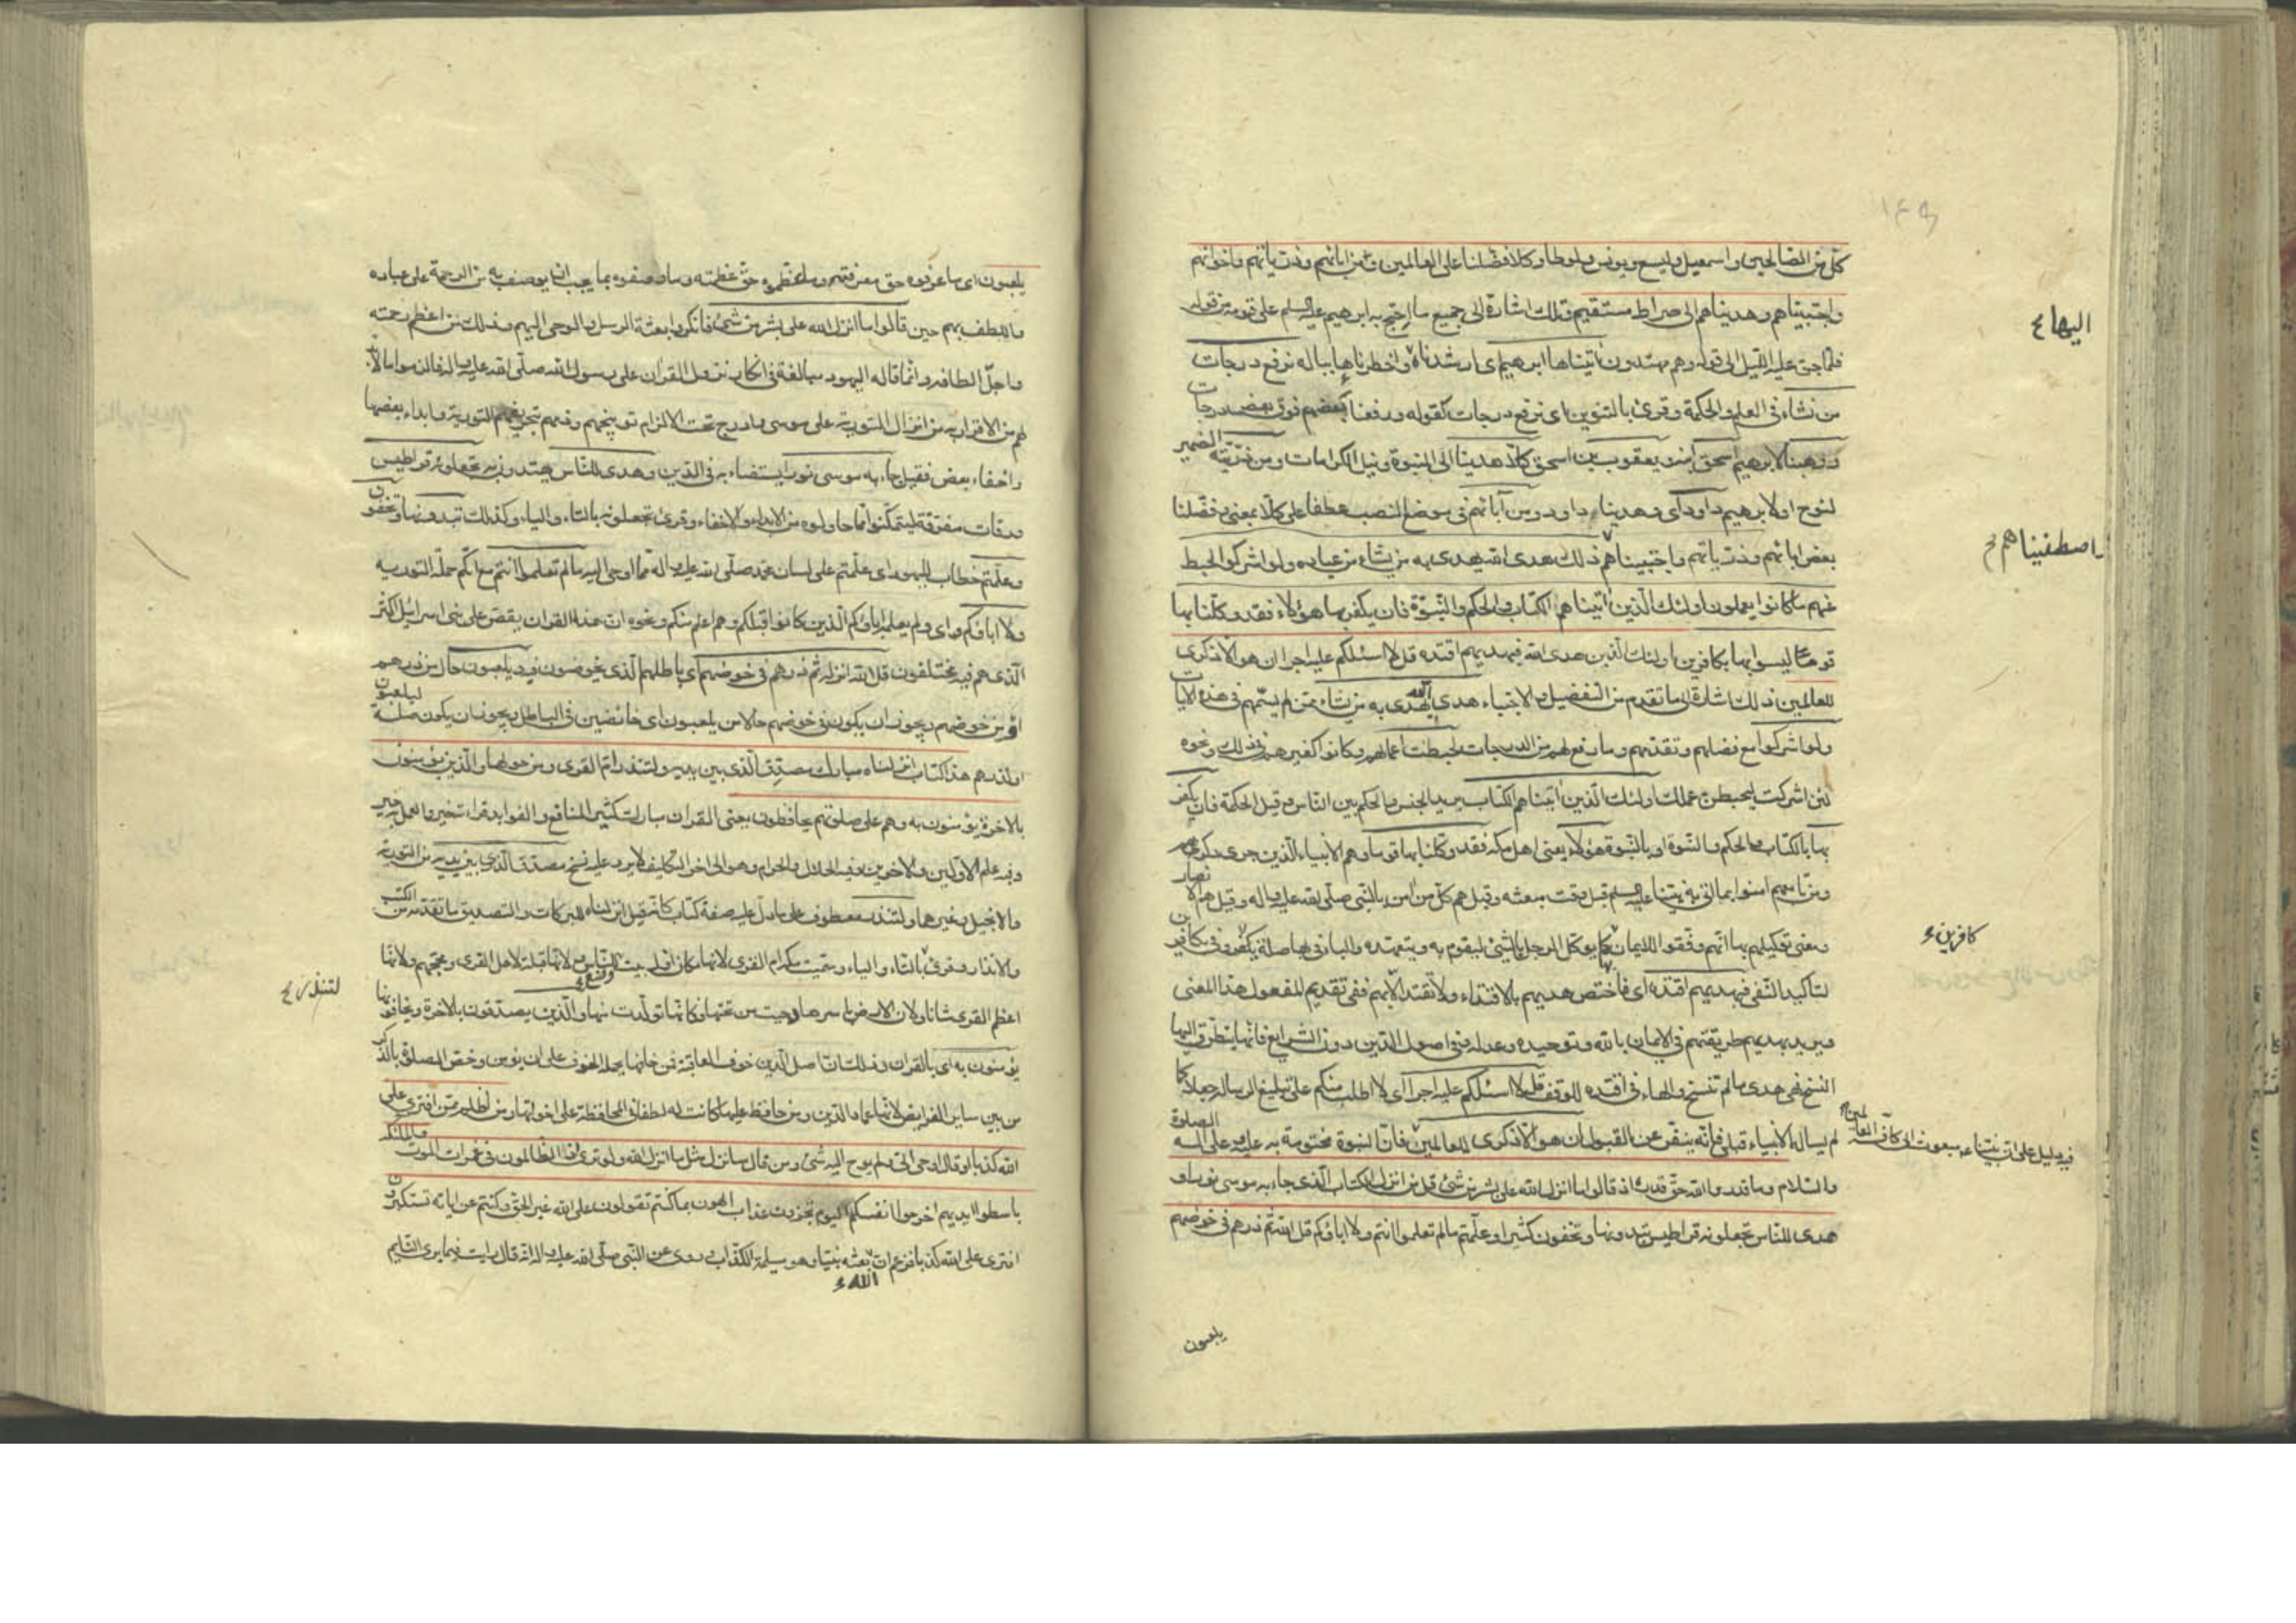 كل من الصالحين واسمعيل واليسع ويونس ولوطا وكلا فضلنا على العالمين ومن ابائهم وذرياتهم واخوانهم
واجتبيناهم وهديناهم الى صراط مستقيم وتلك اشارة الى جميع ما احتج به ابرهيم عليه السلم على قومه من قوله
اليها
فلما جن عليه الليل الى قوله وهم مهتدون اتيناها ابرهيم اى ارشدناه واخطرناها بباله نرفع درجات
من نشاء فى العلم والحكمة وقرئ بالتنوين اى نرفع درجات كقوله ورفعنا بعضهم فوق بعض درجات
ووهبنا لابرهيم اسحق ابنه ويعقوب بن اسحق كلا هدينا الى النبوة ونيل الكرامات ومن ذريته الضمير
لنوح او لابرهيم داود اى وهدينا داود ومن آبائهم فى موضع النصب عطفا على كلا بمعنى وفضلنا
بعض ابائهم وذرياتهم واجتبيناهم ذلك هدى الله يهدى به من يشاء من عباده ولو اشركوا لحبط
اصطفيناهم
عنهم ما كانوا يعملون اولئك الذين اتيناهم الكتاب والحكم والنبوة فان يكفر بها هؤلاء فقد وكلنا بها
قوما ليسوا بها بكافرين اولئك الذين هدى الله فبهديهم اقتده قل لا اسئلكم عليه اجرا ان هو الا ذكرى
للعالمين ذلك اشارة الى ما تقدم من التفضيل والاجتباء هدى الله يهدى به من يشاء ممن لم يسمهم فى هذه الايات
ولو اشركوا مع فضلهم وتقدمهم وما رفع لهم من الدرجات لحبطت اعمالهم وكانوا كغيرهم فى ذلك ونحوه
لئن اشركت ليحبطن عملك اولئك الذين اتيناهم الكتاب يريد الجنس والحكم بين الناس وقيل الحكمة فان يكفر
بها بالكتاب والحكم والنبوة او بالنبوة هؤلاء يعنى اهل مكه فقد وكلنا بها قوما وهم الانبياء الذين جرى ذكرهم
ومن تابعهم امنوا بما اتى به نبينا عليه السلم قبل وقت مبعثه وقيل هم كل من امن بالنبى صلى الله عليه واله وقيل هم الانصار
ومعنى توكيلهم بها انهم وفقوا للايمان كما يوكل الرجل بالشئ ليقوم به ويتعهده والباء فى بها صلة يكفر وفى بكافرين
كافرين
لتاكيد النفى فبهديهم اقتده اى فاختص هديهم بالاقتداء ولا تقتد الا بهم ففى تقديم المفعول هذا المعنى
ويريد بهديهم طريقتهم فى الايمان بالله وتوحيده وعدله وفى اصول الدين دون الشرايع فانها يتطرق اليها
النسخ فهى هدى ما لم تنسخ والهاء فى اقتده للوقف قل لا اسئلكم عليه اجرا اى لا اطلب منكم على تبليغ الرساله جعلا كما
لم يساله الانبياء قبلى فانه ينفر عن القبول ان هو الا ذكرى للعالمين فان النبوة مختومة به عليه وعلى اله الصلوة
فيه دليل على ان نبينا مبعوث الى كافة العالمين
والسلام وما قدروا الله حق قدره اذ قالوا ما انزل الله على بشر من شئ قل من انزل الكتاب الذى جاء به موسى نورا و
هدى للناس تجعلونه قراطيس تبدونها وتخفون كثيرا وعلمتم ما لم تعلموا انتم ولا اباؤكم قل الله ثم ذرهم فى خوضهم
يلعبون
يلعبون اى ما عرفوه حق معرفته وما عظموه حق عظمته وما وصفوه بما يجب ان يوصف به من الرحمة على عباده
واللطف بهم حين قالوا ما انزل الله على بشر من شئ فانكروا بعثة الرسل والوحى اليهم وذلك من اعظم رحمته
واجل الطافه وانما قاله اليهود مبالغة فى انكار نزول القران على رسول الله صلى الله عليه واله فالزموا ما لابد
لهم من الاقرار به من انزال التورية على موسى وادرج تحت الالزام توبيخهم وذمهم بتحريفهم التورية وابداء بعضها
واخفاء بعض فقيل جاء به موسى نورا يستضاء به فى الدين وهدى للناس يهتدون به تجعلونه قراطيس
ورقات مفرقة ليتمكنوا مما حاولوه من الابداء والاخفاء وقرئ تجعلونه بالتاء والياء وكذلك تبدونها وتخفون
وعلمتم خطاب لليهود اى علمتم على لسان محمد صلى الله عليه واله مما اوحى اليه ما لم تعلموا انتم مع انكم حملة التورية
ولا اباؤكم اى ولم يعلمه اباؤكم الذين كانوا قبلكم وهم اعلم منكم ونحوه ان هذا القران يقص على بنى اسرائيل اكثر
الذى هم فيه يختلفون قل الله انزله ثم ذرهم فى خوضهم اى باطلهم الذى يخوضون فيه يلعبون حال من ذرهم
او من خوضهم ويجوز ان يكون فى خوضهم حالا من يلعبون اى خائضين فى الباطل ويجوز ان يكون صلة ليلعبون
او لذرهم هذا كتاب انزلناه مبارك مصدق الذى بين يديه ولتنذر ام القرى ومن حولها والذين يؤمنون
بالاخرة يؤمنون به وهم على صلوتهم يحافظون يعنى القران مبارك كثير المنافع والفوايد قراءته خير والعمل به خير
وفيه علم الاولين والاخرين وفيه الحلال والحرام وهو الى اخر التكليف لا يرد عليه نسخ مصدق الذى بين يديه من التورية
والانجيل وغيرها ولتنذر معطوف على ما دل عليه صفة كتاب كانه قيل انزلناه للبركات والتصديق ما تقدمه من الكتب
والانذار وقرئ بالتاء والياء وسميت مكة ام القرى لانها مكان اول بيت وضع للناس ولانها قبلة لاهل القرى ومحجهم ولانها
لتنذر
اعظم القرى شانا ولان الارض باسرها دحيت من تحتها فكانها تولدت منها والذين يصدقون بالاخرة ويخافونها
يؤمنون به اى بالقران وذلك ان اصل الدين خوف العاقبة فمن خافها يحمله الخوف على ان يؤمن وخص الصلوة بالذكر
من بين ساير الفرايض لانها عماد الدين ومن حافظ عليها كانت له لطفا فى المحافظة على اخواتها ومن اظلم ممن افترى على
الله كذبا او قال اوحى الى ولم يوح اليه شئ ومن قال سانزل مثل ما انزل الله ولو ترى اذ الظالمون فى غمرات الموت والملئكة
باسطوا ايديهم اخرجوا انفسكم اليوم تجزون عذاب الهون بما كنتم تقولون على الله غير الحق وكنتم عن اياته تستكبرون
افترى على الله كذبا فزعم ان الله بعثه نبيا وهو مسيلمة الكذاب وروى عن النبى صلى الله عليه واله انه قال رايت فيما يرى النايم